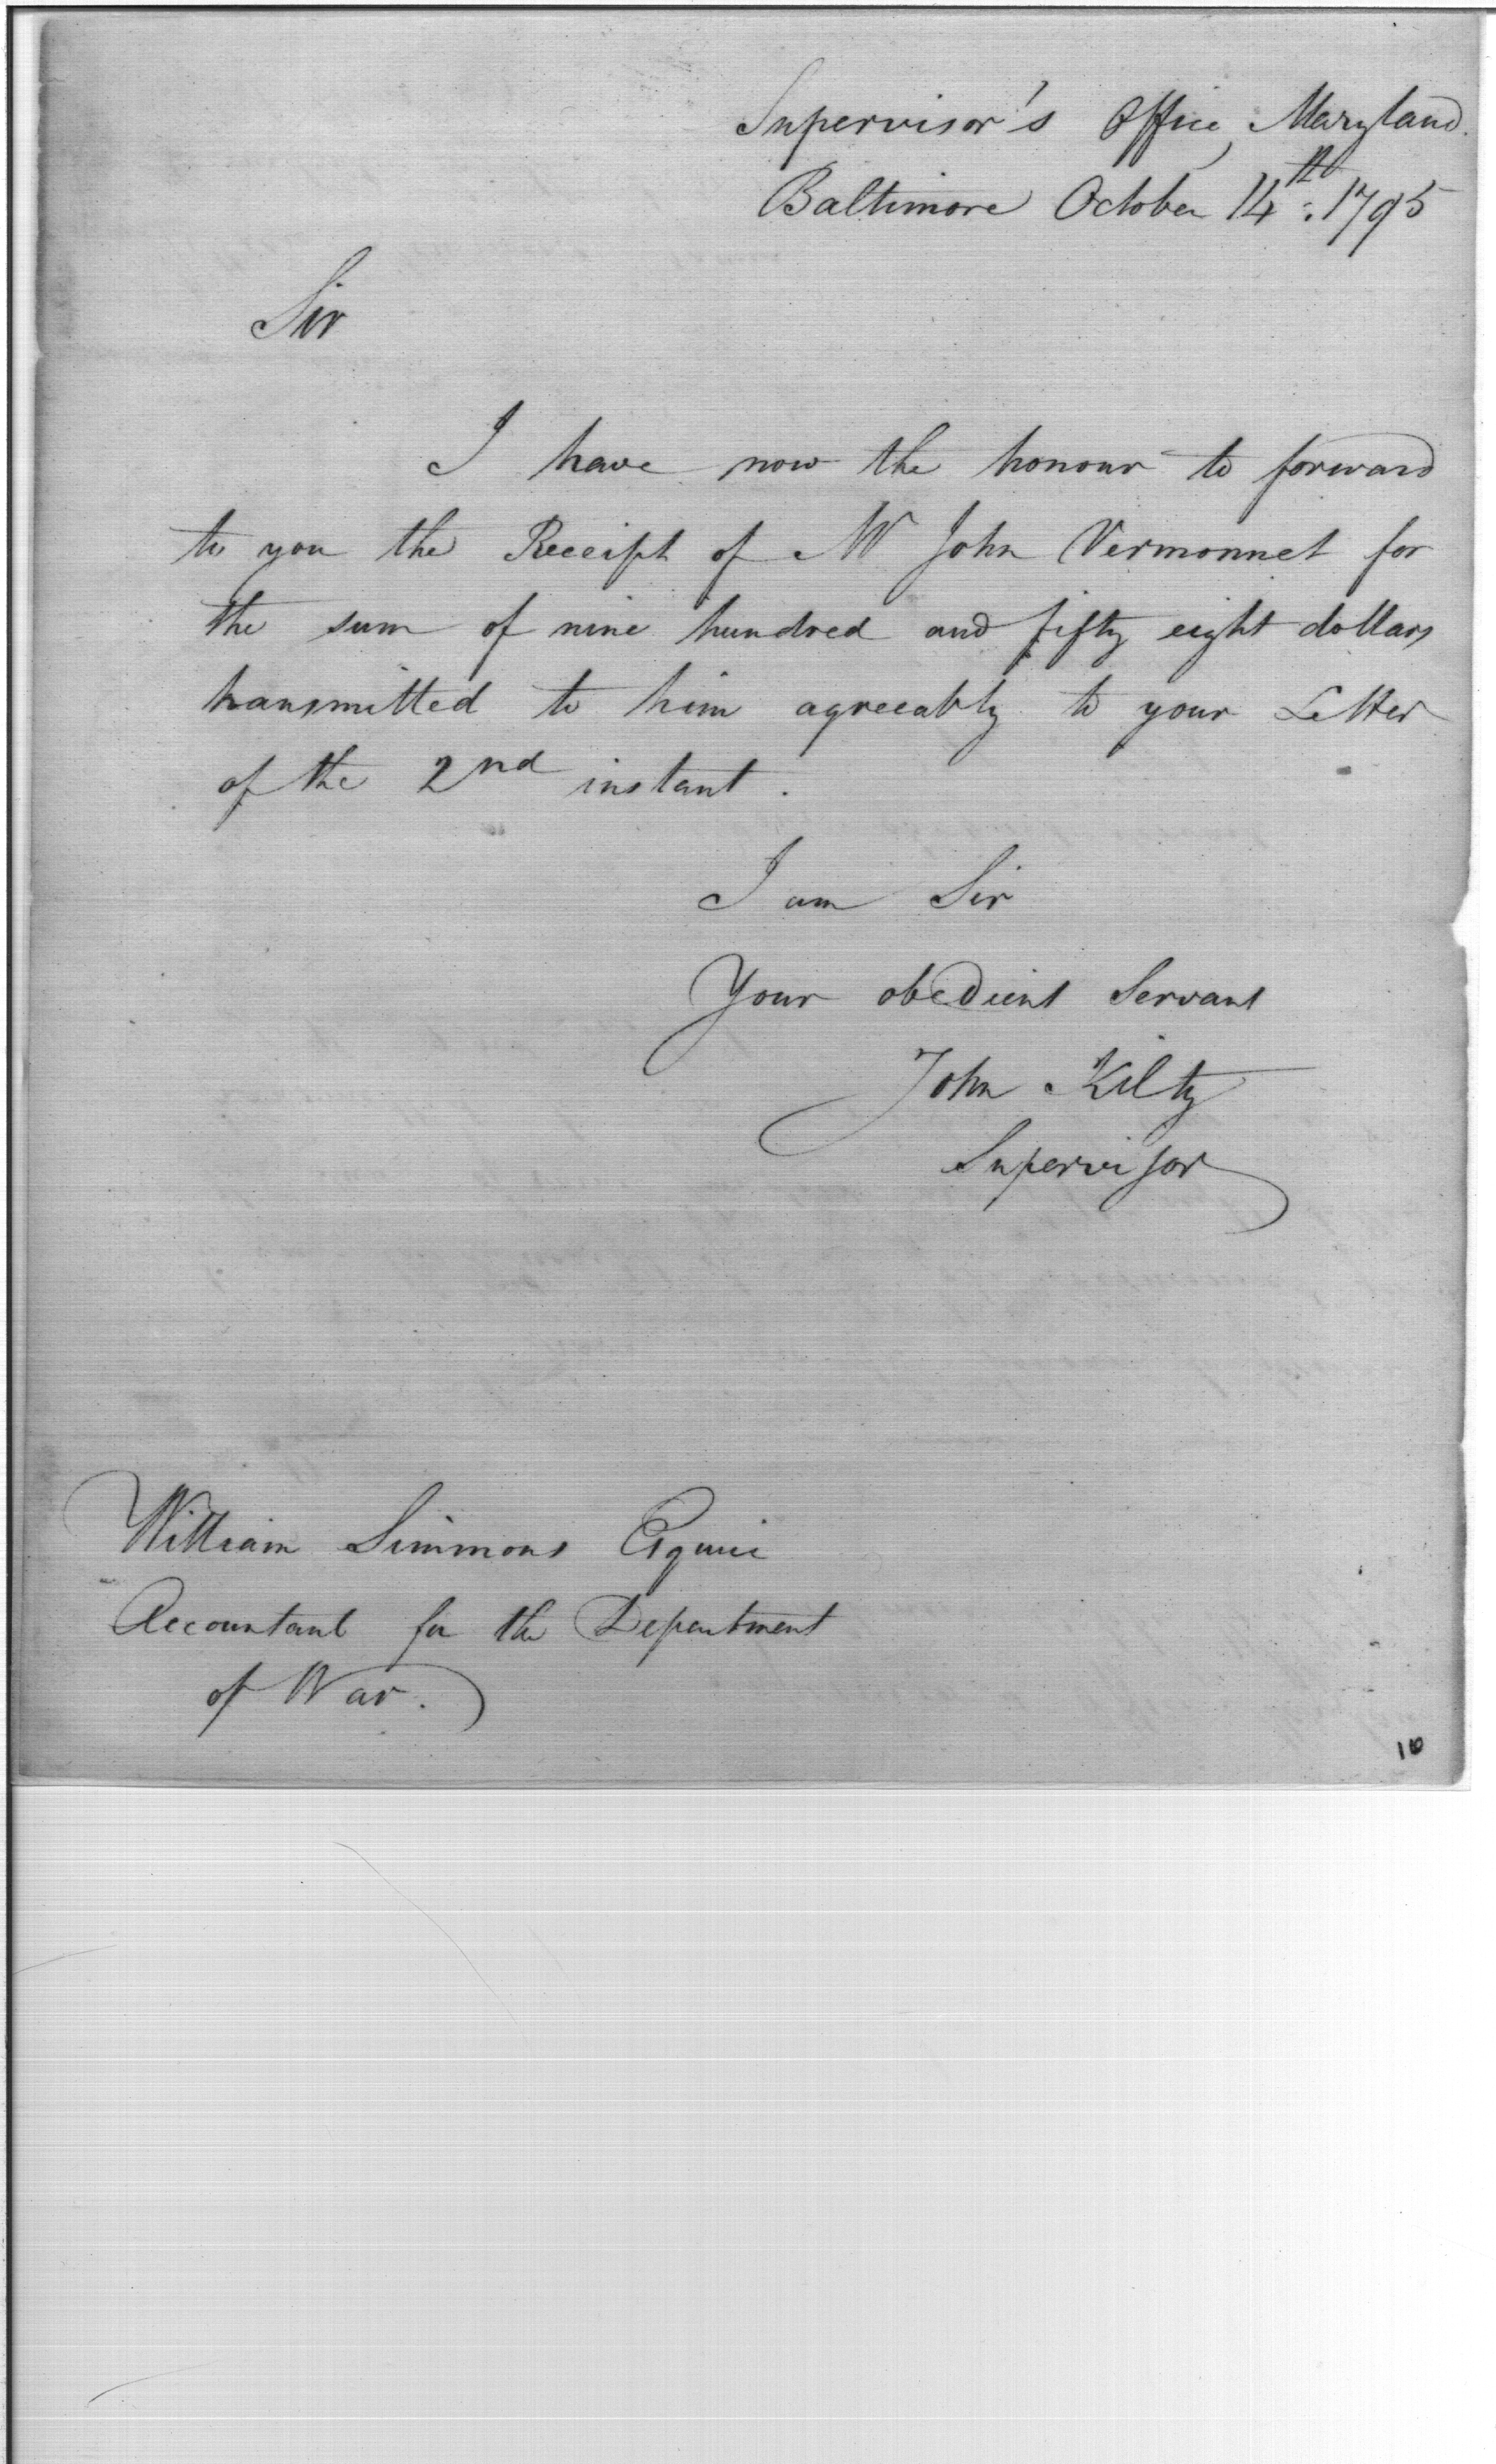 Supervisor's Office, Maryland.
Baltimore October 14th: 1795
Sir
I have now the honour to forward
to you the Receipt of Mr John Vermonnet for
the sum of nine hundred and fifty eight dollars
transmitted to him agreeably to your Letter
of the 2nd instant.
I am Sir
Your obedient Servant
John Kilty
Supervisor
William Simmons Esquire
Accountant for the Department
of War.
10